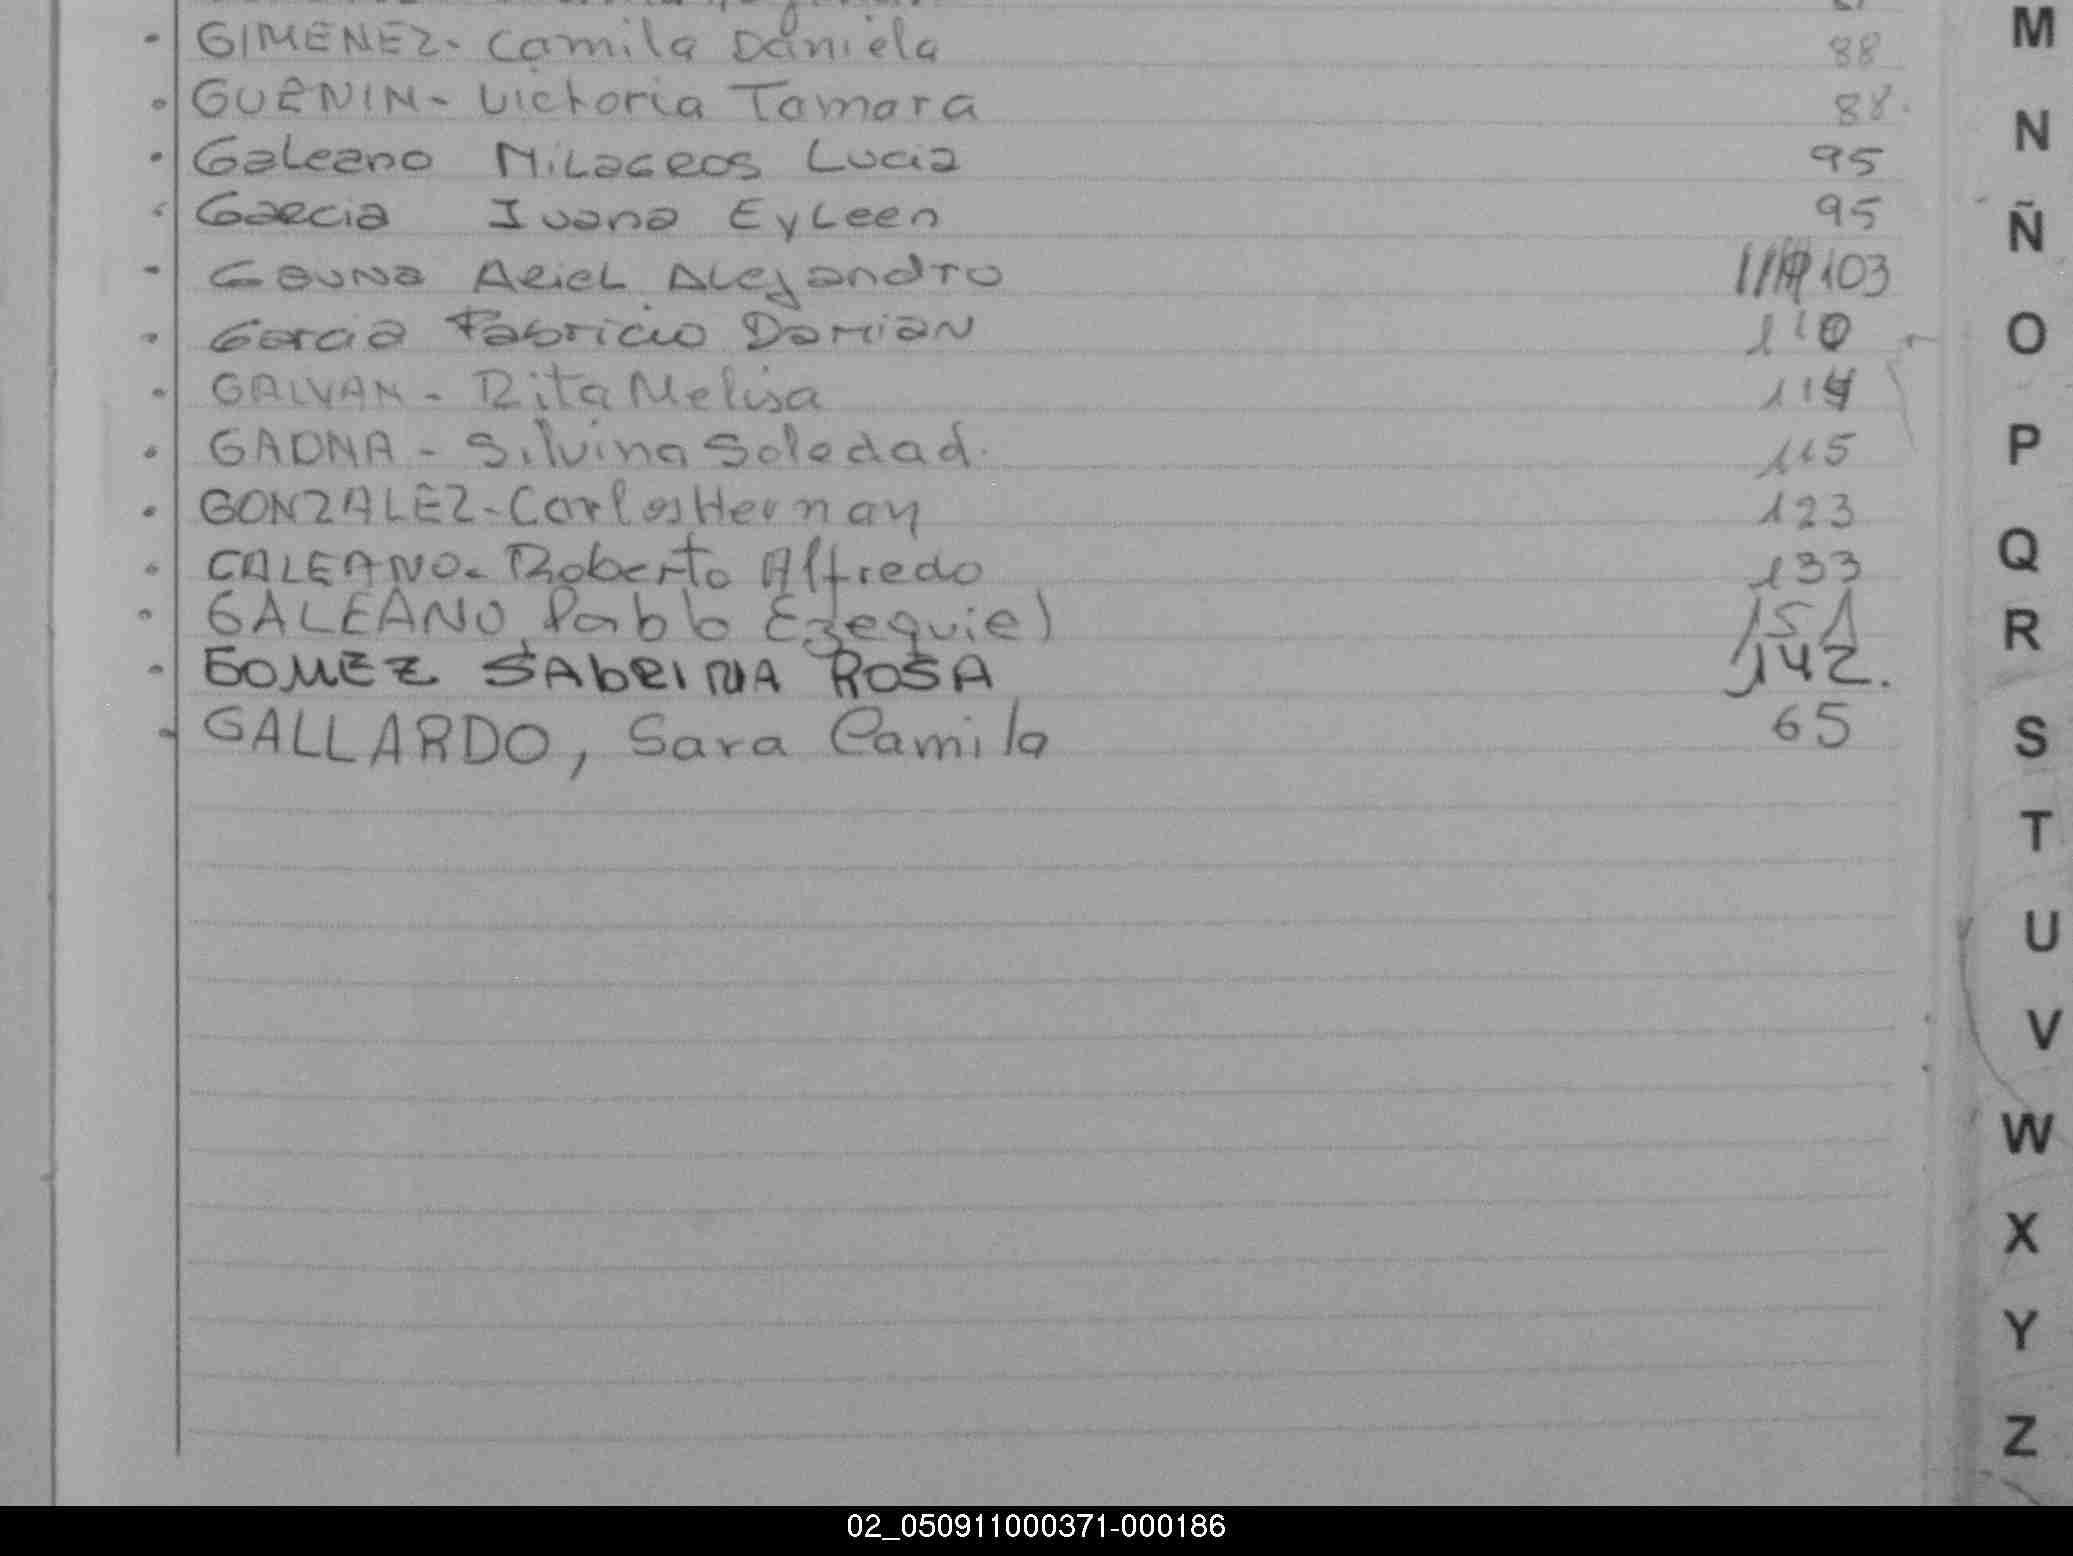 GIMENEZ- Camila Daniela 88
GUENIN- Victoria Tamara 88.
Galeano Milagros Lucia 95
Garcia Ivana Eyleen 95
Gauna Ariel Alejandro 103
Garcia Fabricio Damian 110
GALVAN - Rita Melisa 114
GAONA - Silvina Soledad. 115
GONZALEZ- Carlos Hernan 123
GALEANO- Roberto Alfredo 133
GALEANO, Pablo Ezequiel 151
GOMEZ SAbRINA ROSA 142.
GALLARDO, Sara Camila 65
M
N
Ñ
O
P
Q
R
S
T
U
V
W
X
Y
Z
02_050911000371-000186